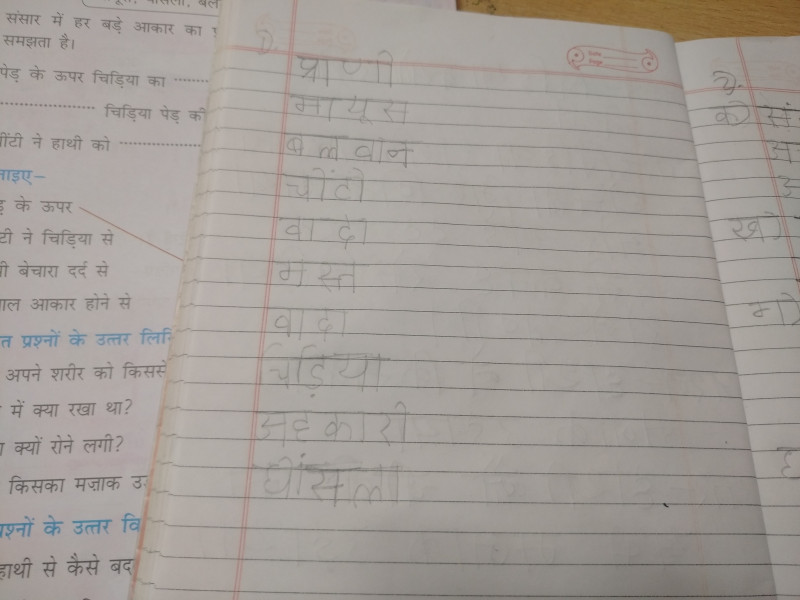 संसार में हर बड़े आकार का
समझता है।
पेड़ के ऊपर चिड़िया का ............
............ चिड़िया पेड़ की
ने हाथी को ............
के ऊपर
ने चिड़िया से
बेचारा दर्द से
आकार होने से
प्रश्नों के उत्तर
अपने शरीर को किससे
में क्या रखा था?
क्यों रोने लगी?
किसका मज़ाक
के उत्तर
हाथी से कैसे
1)
प्राणी
मायूस
बलवान
चींटी
वादा
मस्त
वादा
चिड़िया
अहंकारी
घोंसला
Date
Page
2.
क)
ख)
ग)